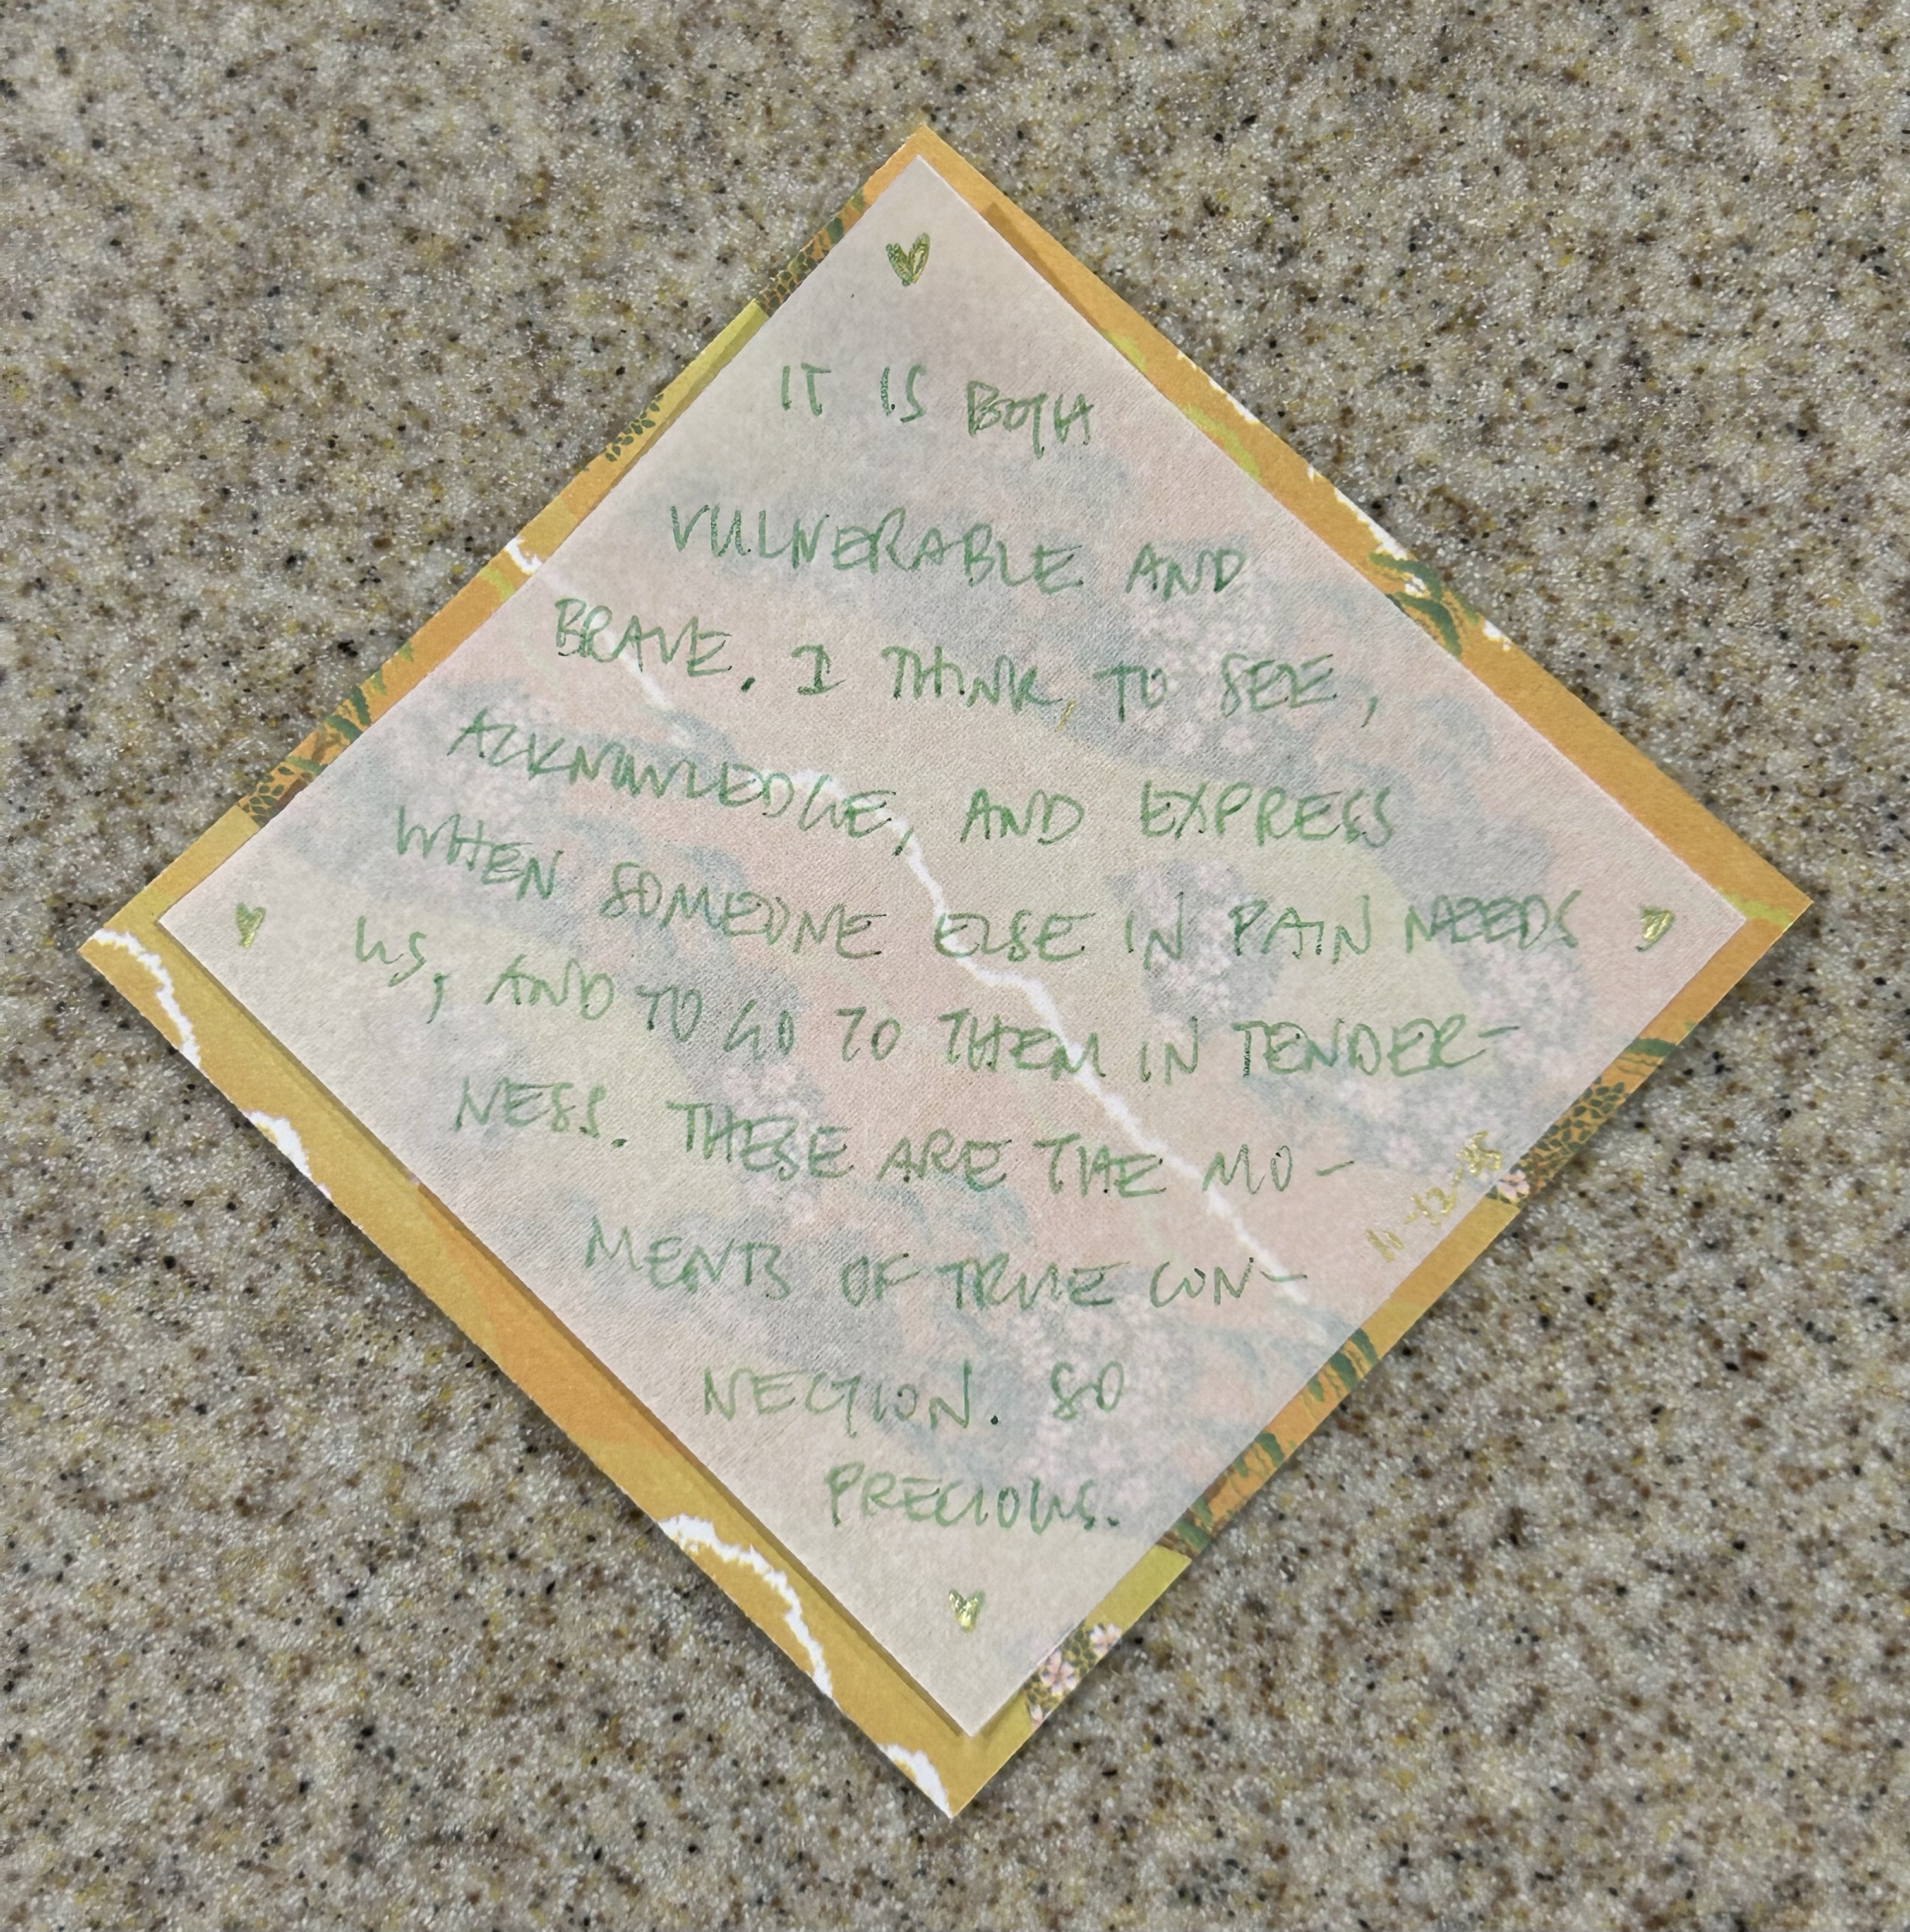 IT IS BOTH
VULNERABLE AND
BRAVE, I THINK, TO SEE,
ACKNOWLEDGE, AND EXPRESS
WHEN SOMEONE ELSE IN PAIN NEEDS
US, AND TO GO TO THEM IN TENDER-
NESS. THESE ARE THE MO-
MENTS OF TRUE CON-
NECTION. SO
PRECIOUS.